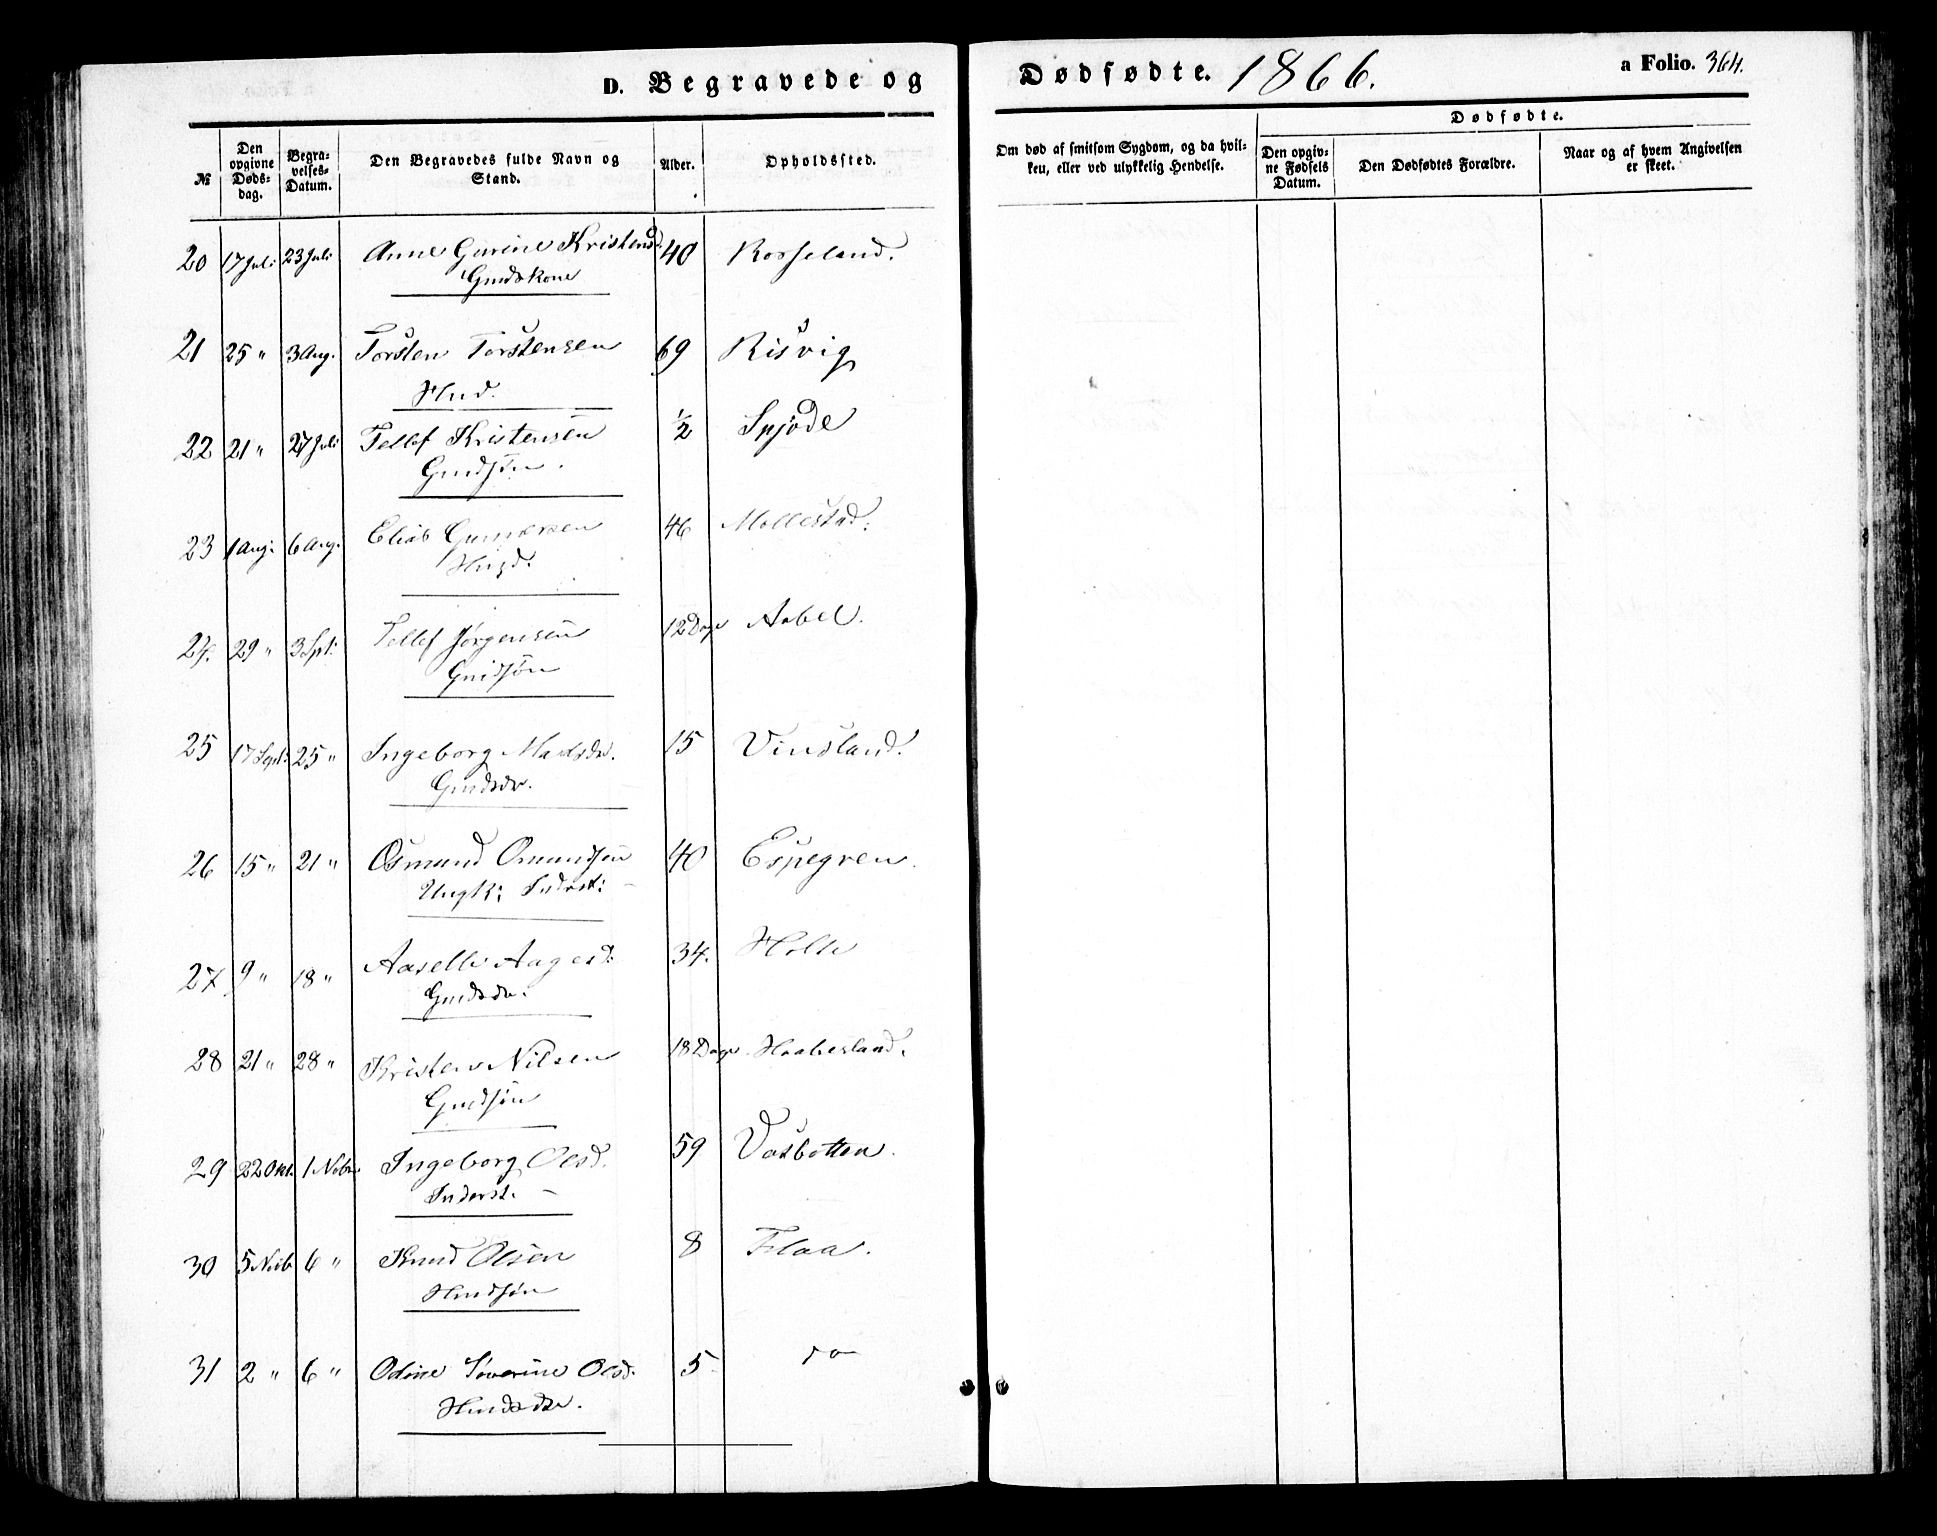 D. Begravede og Dødfødte. 1866. a Folio. 364.
№
Den opgivne Døds-dag.
Begra-velses-Datum.
Den Begravedes fulde Navn og Stand.
Alder.
Opholdssted.
Om død af smitsom Sygdom, og da hvil-ken, eller ved ulykkelig Hendelse.
Dødfødte.
Den opgiv-ne Fødsels Datum.
Den Dødfødtes Forældre.
Naar og af hvem Angivelsen er skeet.
20 17 Juli 23 Juli Anne Gurine Kristensd. 40 Rosseland.
Gmdskone
21 25 " 3 Aug. Torsten Torstensen 69 Risvig
Hmd.
22 21 " 27 Juli Tellef Kristensen 1/2 Spjode
Gmdsøn.
23 1 Aug. 6 Aug. Elias Gundersen 46 Mollestad.
24. 29 " 3 Spt. Tellef Jørgensen 12 Dage Aabel.
Gmdsøn
25 17 Sept. 25 " Ingeborg Madsdr. 15 Vindsland.
Gmdsdr.
26 15 " 21 " Osmund Omundsen 40 Espegren.
Ungk: Inderst:
27 9 " 18 " Aaselle Aagesd: 34. Holte
Gmdsdr.
28 21 " 28 " Kristen Nilsen 18 Dage Haabesland.
Gmdsøn
29 22 Okt. 1 Novbr. Ingeborg Olsd. 59 Vasbotten.
Inderst.
30 5 Novb. 6 " Knud Olsen 8 Flaa.
Hmdsøn
31 2 " 6 " Odine Severine Olsd. 5 do
Hmdsdr.